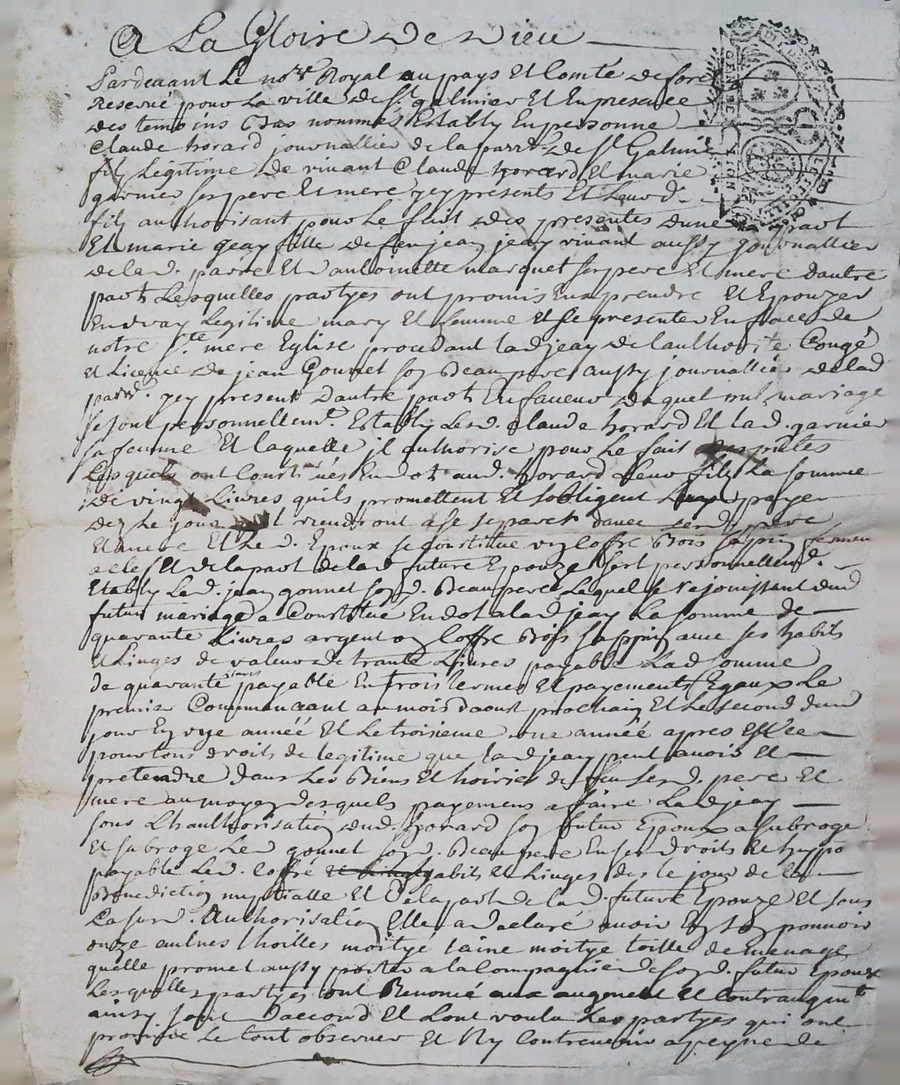 A La Gloire de Dieu
Pardevant Le no.re Royal au pays Et Comté de fore
Reservé pour La ville de St galmier Et En presence
des temoins Bas nommés Estably En personne
Claude horard journallier de la parr.e de St Galmier
fils Legitime de vivant Claude horard Et marie
garnier ses pere Et mere jcy presents Et Leurd.
filz authorisant pour Le fait des presentes dune part
Et marie jeay fille de feu jean jeay vivant aussy journallier
de lad. parre Et d'anthoinette marquet ses pere Et mere dautre
part Lesquelles partyes ont promis Em prendre Et Epouzer
En vray Legitime mary Et femme Et se presenter En face de
notre Ste mere Eglise procedant lad jeay de lauthorité Congé
Et Licence de jean Gonnet son Beaupere aussy journallier de lad
parr.e jcy present dautre part En faveur duquel mariage
se sont personnellem.t Establys Led. Claude horard Et lad. garnier
sa femme Et laquelle jl authorise pour Le fait
Lesquels ont Constitués En dot aud. horard Leur fils La somme
de vingt Livres quils promettent Et sobligent payer
dez Le jour viendront a se separer davec sesd. pere
Et mere Et Led. Epoux se Constitue un Coffre Bois sapin fermant
a clef Et de la part de lad future Epouze sest personnellem.t
Etably Led. jean gonnet sond. Beaupere Lequel se rejouissant dud
futur mariage a Constitué En dot a lad jeay La somme de
quarante Livres argent un Coffre Bois sappin avec ses habits
Et Linges de valeur de trante Livres payable La d somme
de quarante livres payable En trois termes Et payements Egaux Le
premier Commencant au mois daoust prochain Et Le second dud
jour En une année Et Le troisieme une année apres Et Ce
pour tous droits de legitime que lad jeay peut avoir Et
pretendre dans Les Biens Et hoiries de feu sesd. pere Et
mere au moyen desquels payemens a faire La d jeay
sous Lhauthorisation dud. horard son futur Epoux a subrogé
Et subroge Led gonnet sond. Beaupere En ses droits Et hyppo
payable Led. Coffre et Linges habits Et Linges des le jour de la
Benediction nuptialle Et de la part de lad. future Epouze Et sous
La susd. authorisation Elle a declaré avoir En son pouvoir
onze aulnes thoilles moitye laine moitye toille de menage
quelle promet aussy porter a la Compagnie de sond. futur Epoux
Lesquelles partyes ont Renoncé aux augment Et Contraugm.t
ainsy sont daccord Et Lont voulu Les partyes qui ont
promis Le tout observer Et Ny Contrevenir a peyne de